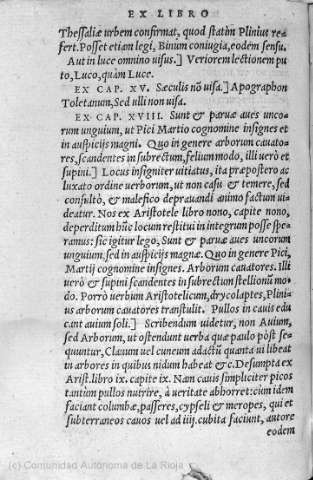 EX LIBRO
Thessaliæ urbem confirmat, quod statim Plinius re
fert. Posset etiam legi, Binum coniugia, eodem sensu.
Aut in luce omnino uisus.] Veriorem lectionem pu
to, Luco, quàm Luce.
EX CAP. XV. Sæculis nõ uisa.] Apographon
Toletanum, Sed ulli non uisa.
EX CAP. XVIII. Sunt & paruæ aues unco-
rum unguium, ut Pici Martio cognomine insignes et
in auspicijs magni. Quo in genere arborum cauato-
res, scandentes in subrectum, felium modo, illi uerò et
supini.] Locus insigniter uitiatus, ita præpostero ac
luxato ordine uerborum, ut non casu & temere, sed
consultò, & malefico deprauandi animo factum ui-
deatur. Nos ex Aristotele libro nono, capite nono,
deperditum hũc locum restitui in integrum posse spe-
ramus: sic igitur lego, Sunt & paruæ aues uncorum
unguium. sed in auspicijs magnæ. Quo in genere Pici,
Martij cognomine insignes. Arborum cauatores. Illi
uerò & supini scandentes in subrectum stellionũ mo-
do. Porrò uerbum Aristotelicum, drycolaptes, Plini-
us arborum cauatores transtulit. Pullos in cauis edu
cant auium soli.] Scribendum uidetur, non Auium,
sed Arborum, ut ostendunt uerba quæ paulo pòst se-
quuntur, Clauum uel cuneum adactũ quanta ui libeat
in arbores in quibus nidum habeat &c. Desumpta ex
Arist. libro ix. capite ix. Nam cauis simpliciter picos
tantùm pullos nutrire, à ueritate abhorret: cùm idem
faciant columbæ, passeres, cypseli & meropes, qui et
subterraneos cauos uel ad iiij. cubita faciunt, autore
eodem
(c) Comunidad Autónoma de La Rioja